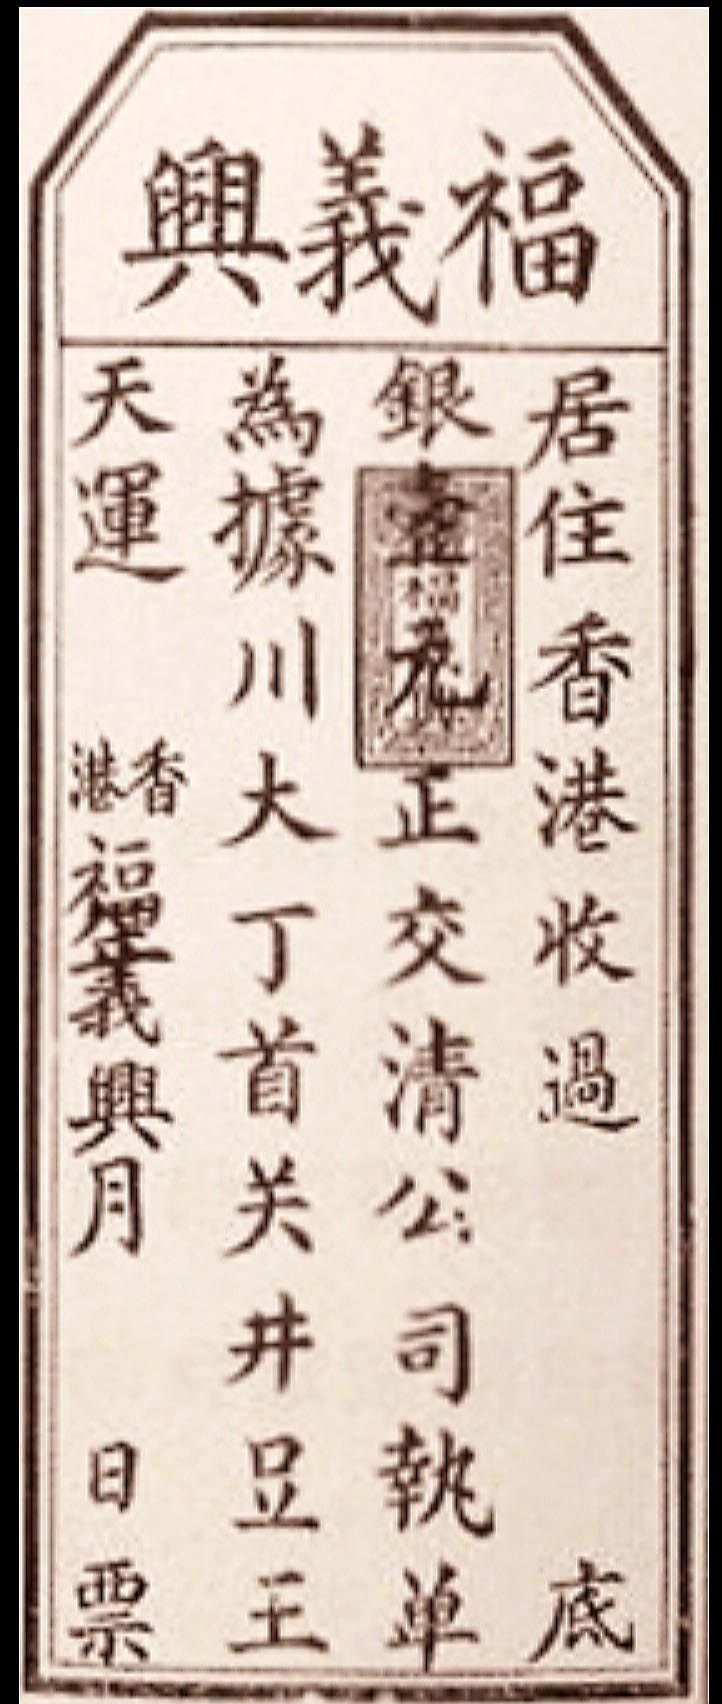 福義興
居住香港收過 底
銀壹元正交清公司執单
為據川大丁首关井王
天運 香港 福義興 月 日票